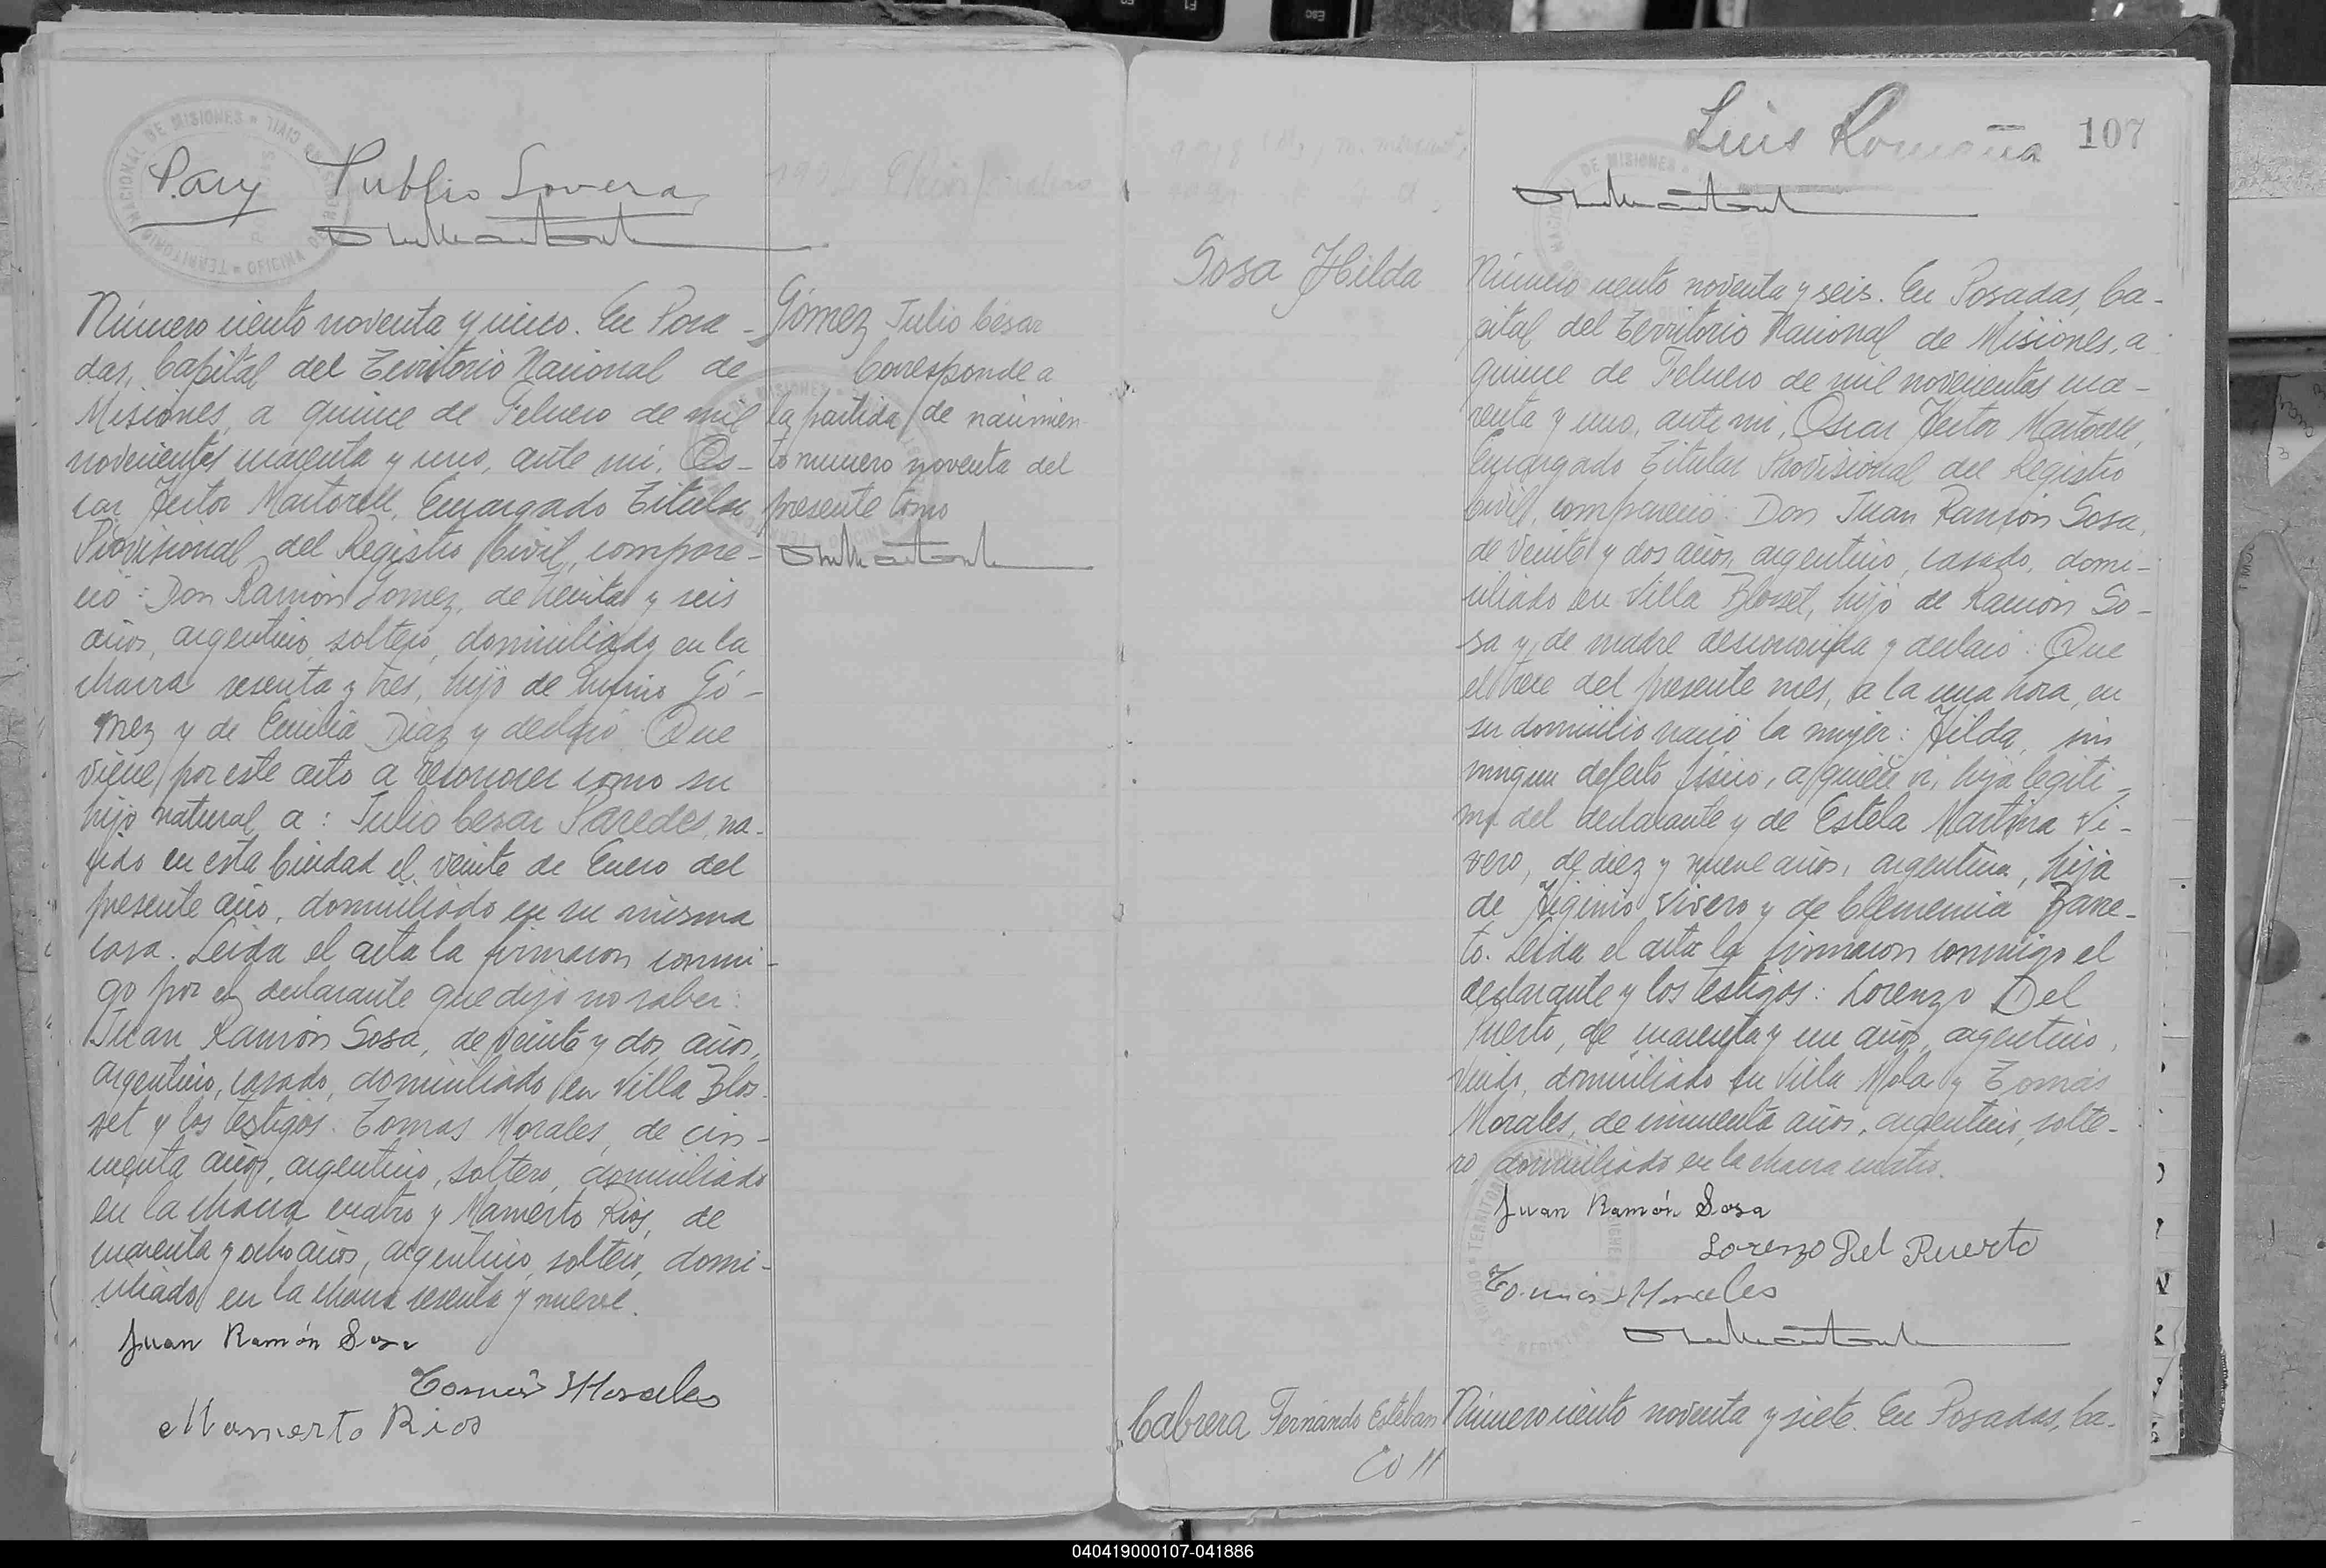 Pary Publio Lovera
Número ciento noventa y cinco. En Posa-
das, Capital del Territorio Nacional de
Misiones, a quince de Febrero de mil
novecientos cuarenta y uno, ante mi, Os-
car Hector Martorell, Encargado Titular
Provisional del Registro Civil, compare-
ció: Don Ramón Gomez, de treinta y seis
años, argentino, soltero, domiciliado en la
chacra sesenta y tres, hijo de Rufino Gó-
mez y de Emilia Diaz y declaró: Que
viene por este acto a reconocer como su
hijo natural a: Julio Cesar Paredes, na-
cido en esta Ciudad el veinte de Enero del
presente año, domiciliado en su misma
casa. Leida el acta la firmaron conmi-
go por el declarante que dijo no saber:
Juan Ramón Sosa, de veinte y dos años,
argentino, casado, domiciliado en Villa Blos-
set y los testigos: Tomas Morales, de cin-
cuenta años, argentino, soltero, domiciliado
en la chacra cuatro y Mamerto Rios, de
cuarenta y ocho años, argentino, soltero, domi-
ciliado en la chacra sesenta y nueve.
Juan Ramón Sosa
Tomás Morales
Mamerto Rios
Gómez Julio César
Corresponde a
la partida de nacimien-
to numero noventa del
presente tomo
Luis Romaña 107
Sosa Hilda
Número ciento noventa y seis. En Posadas, Ca-
pital del Territorio Nacional de Misiones, a
quince de Febrero de mil novecientos cua-
renta y uno, ante mi, Oscar Hector Martorell,
Encargado Titular Provisional del Registro
Civil, compareció: Don Juan Ramón Sosa,
de veinte y dos años, argentino, casado, domi-
ciliado en Villa Blosset, hijo de Ramón So-
sa y de madre desconocida y declaró: Que
el trece del presente mes, a la una hora, en
su domicilio nació la mujer: Hilda, sin
ningun defecto fisico, a quien vi, hija legiti-
ma del declarante y de Estela Martina Vi-
vero, de diez y nueve años, argentina, hija
de Higinio Vivero y de Clemencia Barre-
to. Leida el acta la firmaron conmigo el
declarante y los testigos: Lorenzo Del
Puerto, de cuarenta y un años, argentino,
viudo, domiciliado en Villa Mola y Tomas
Morales, de cincuenta años, argentino, solte-
ro domiciliado en la chacra cuatro.
Juan Ramón Sosa
Lorenzo Del Puerto
Tomás Morales
Cabrera Fernando Esteban
Número ciento noventa y siete. En Posadas, Ca-
040419000107-041886